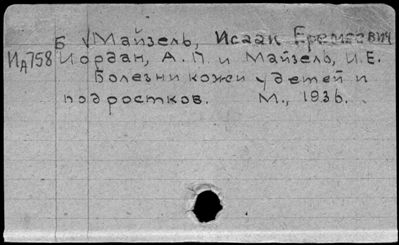 Б √Майзель, Исаак Еремеевич
Ид758 Иордан, А.П. и Майзель, И.Е.
Болезни кожи у детей и
подростков. М., 1936.